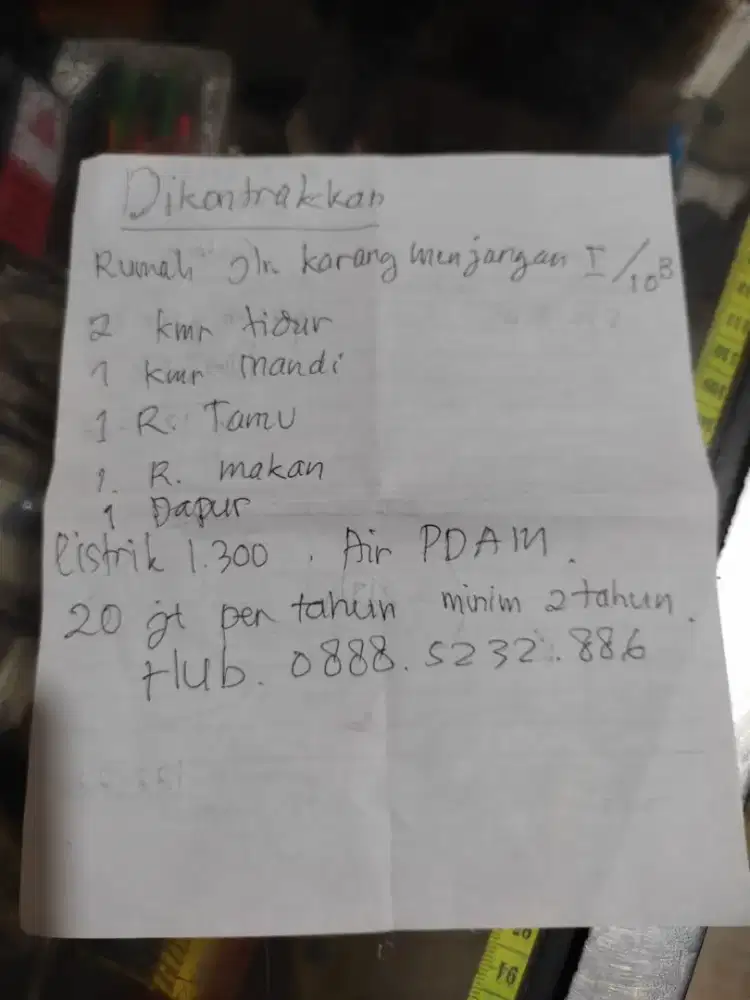 Dikontrakkan
Rumah Jln. karang menjangan I/10B
2 kmr tidur
1 kmr mandi
1 R. Tamu
1. R. makan
1 Dapur
listrik 1.300 . Air PDAM.
20 jt per tahun minim 2 tahun.
Hub. 0888.5232.886